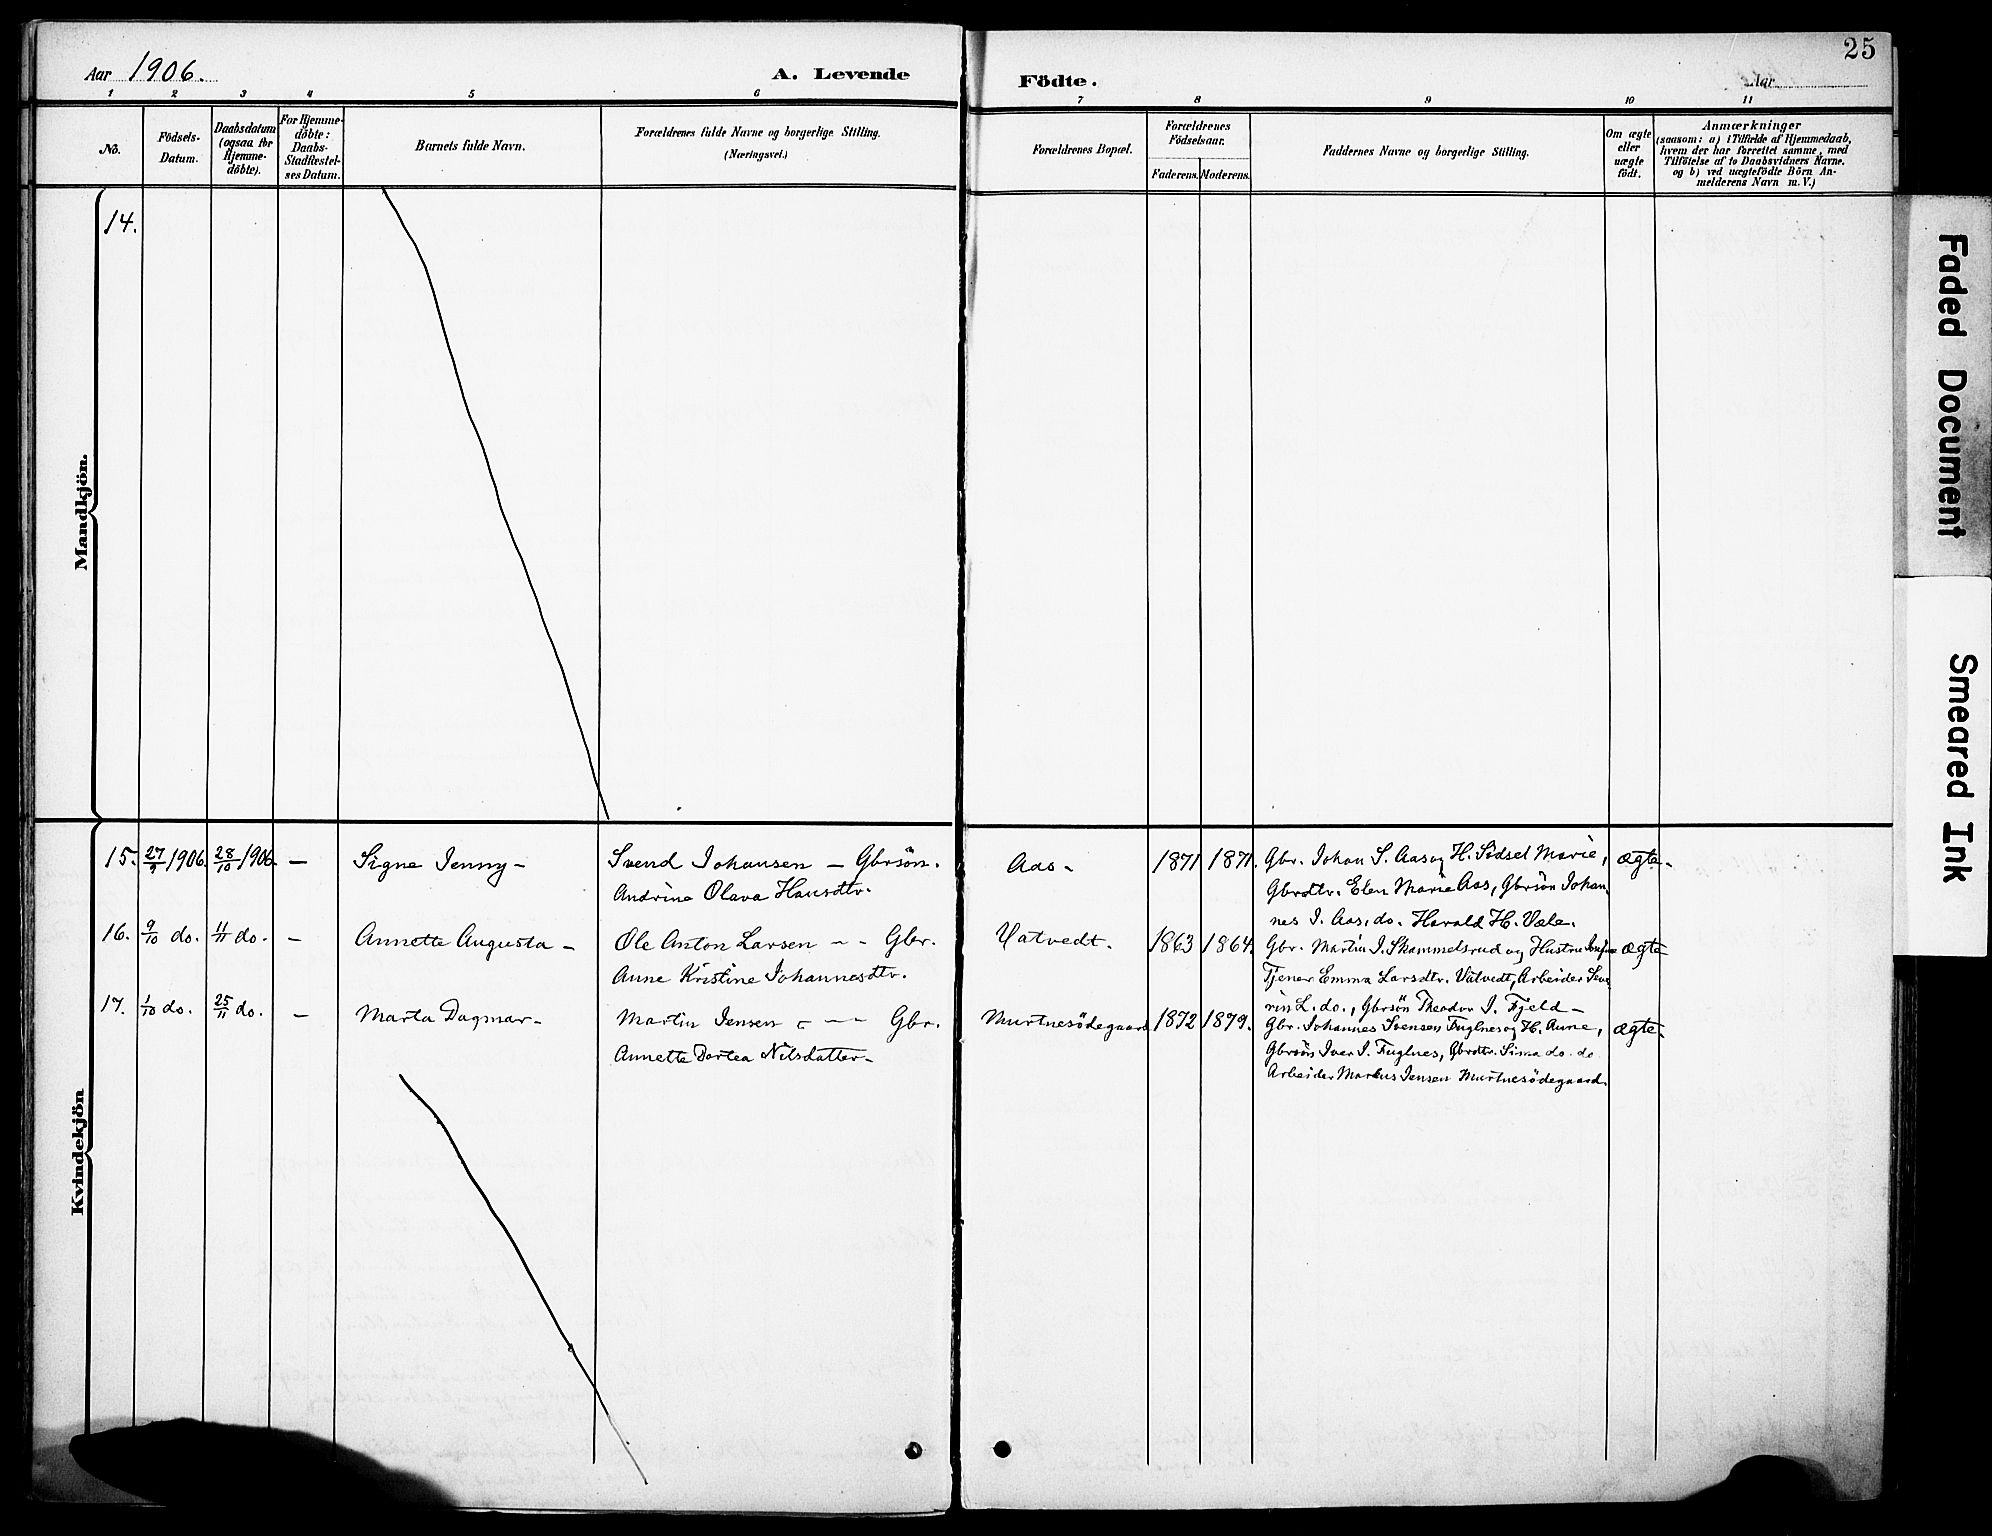 Aar 1906.
A. Levende
Födte.
Aar
25
1 2 3 4 5 6 7 8 9 10 11
No.
Födsels-
Datum.
Daabsdatum
(ogsaa for
Hjemme-
döbte).
For Hjemme-
döbte:
Daabs-
Stadfæstel-
ses Datum.
Barnets fulde Navn.
Forældrenes fulde Navne og borgerlige Stilling.
(Næringsvei.)
Forældrenes Bopæl.
Forældrenes
Födselsaar.
Faderens. Moderens.
Faddernes Navne og borgerlige Stilling.
Om ægte
eller
uægte
födt.
Anmærkninger
(saasom: a) i Tilfælde af Hjemmedaab,
hvem der har forrettet samme, med
Tilföielse af to Daabsvidners Navne.
og b) ved uægtefödte Börn An-
melderens Navn m. V.)
Mandkjön.
14.
Kvindekjön
15. 27/9 1906. 28/10 1906. — Signe Jenny – Svend Johansen – Gbrsön. Aas – 1871 1871. Gbr. Johan S. Aas og H. Sidsel Marie, ægte –
Andrine Olava Hansdtr. Gbrdtr. Elen Marie Aas, Gbrsön Johan
nes J. Aas, do. Harald H. Vele.
16. 9/10 do. 11/11 do. – Annette Augusta – Ole Anton Larsen – – Gbr. Vatvedt. 1863 1864. Gbr. Martin J. Skammelsrud og Hustru ægte
Anne Kristine Johannesdtr. Tjener Emma Larsdtr. Vatvedt, Arbeider Seve
rin L. do., Gbrsön Theodor J. Fjeld –
17. 1/10 do. 25/11 do. – Marta Dagmar – Martin Jensen – – Gbr. Murtnesödegaard 1872 1879. Gbr. Johannes Svensen Fuglnes og H. Anne, ægte –
Annette Dortea Nilsdatter – Gbrsön Iver J. Fuglnes, Gbrdtr. Sima do. do
Arbeider Markus Jensen Murtnesödegaard.
Faded Document
Smeared Ink